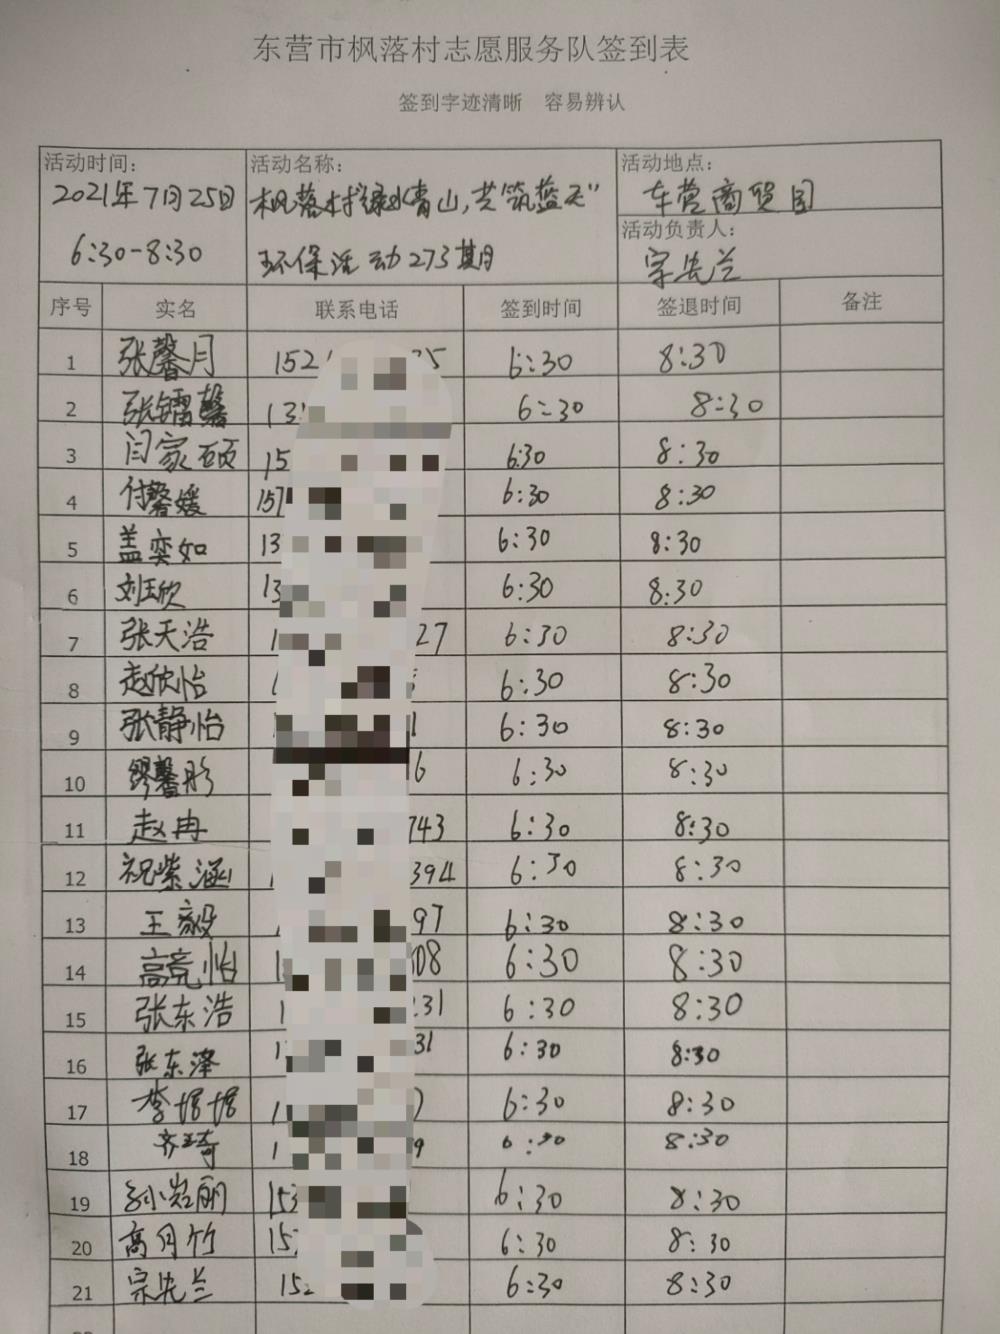 东营市枫落村志愿服务队签到表
签到字迹清晰 容易辨认
活动时间: 活动名称: 活动地点:
2021年7月25日 枫落村"绿水青山,共筑蓝天" 东营商贸园
6:30-8:30 环保活动273期 活动负责人:
宗先兰
序号 实名 联系电话 签到时间 签退时间 备注
1 张馨月 152 5 6:30 8:30
2 张镭馨 13 6:30 8:30
3 闫家硕 15 6:30 8:30
4 付馨媛 157 6:30 8:30
5 盖奕如 13 6:30 8:30
6 刘珏欣 13 6:30 8:30
7 张天浩 1 27 6:30 8:30
8 赵欣怡 6:30 8:30
9 张静怡 1 6:30 8:30
10 缪馨彤 6 6:30 8:30
11 赵冉 743 6:30 8:30
12 祝紫涵 394 6:30 8:30
13 王毅 97 6:30 8:30
14 高竞怡 1 08 6:30 8:30
15 张东浩 1 231 6:30 8:30
16 张东泽 1 31 6:30 8:30
17 李 1 6:30 8:30
18 齐琦 1 9 6:30 8:30
19 孙岩丽 153 6:30 8:30
20 高月竹 15 6:30 8:30
21 宗先兰 152 6:30 8:30